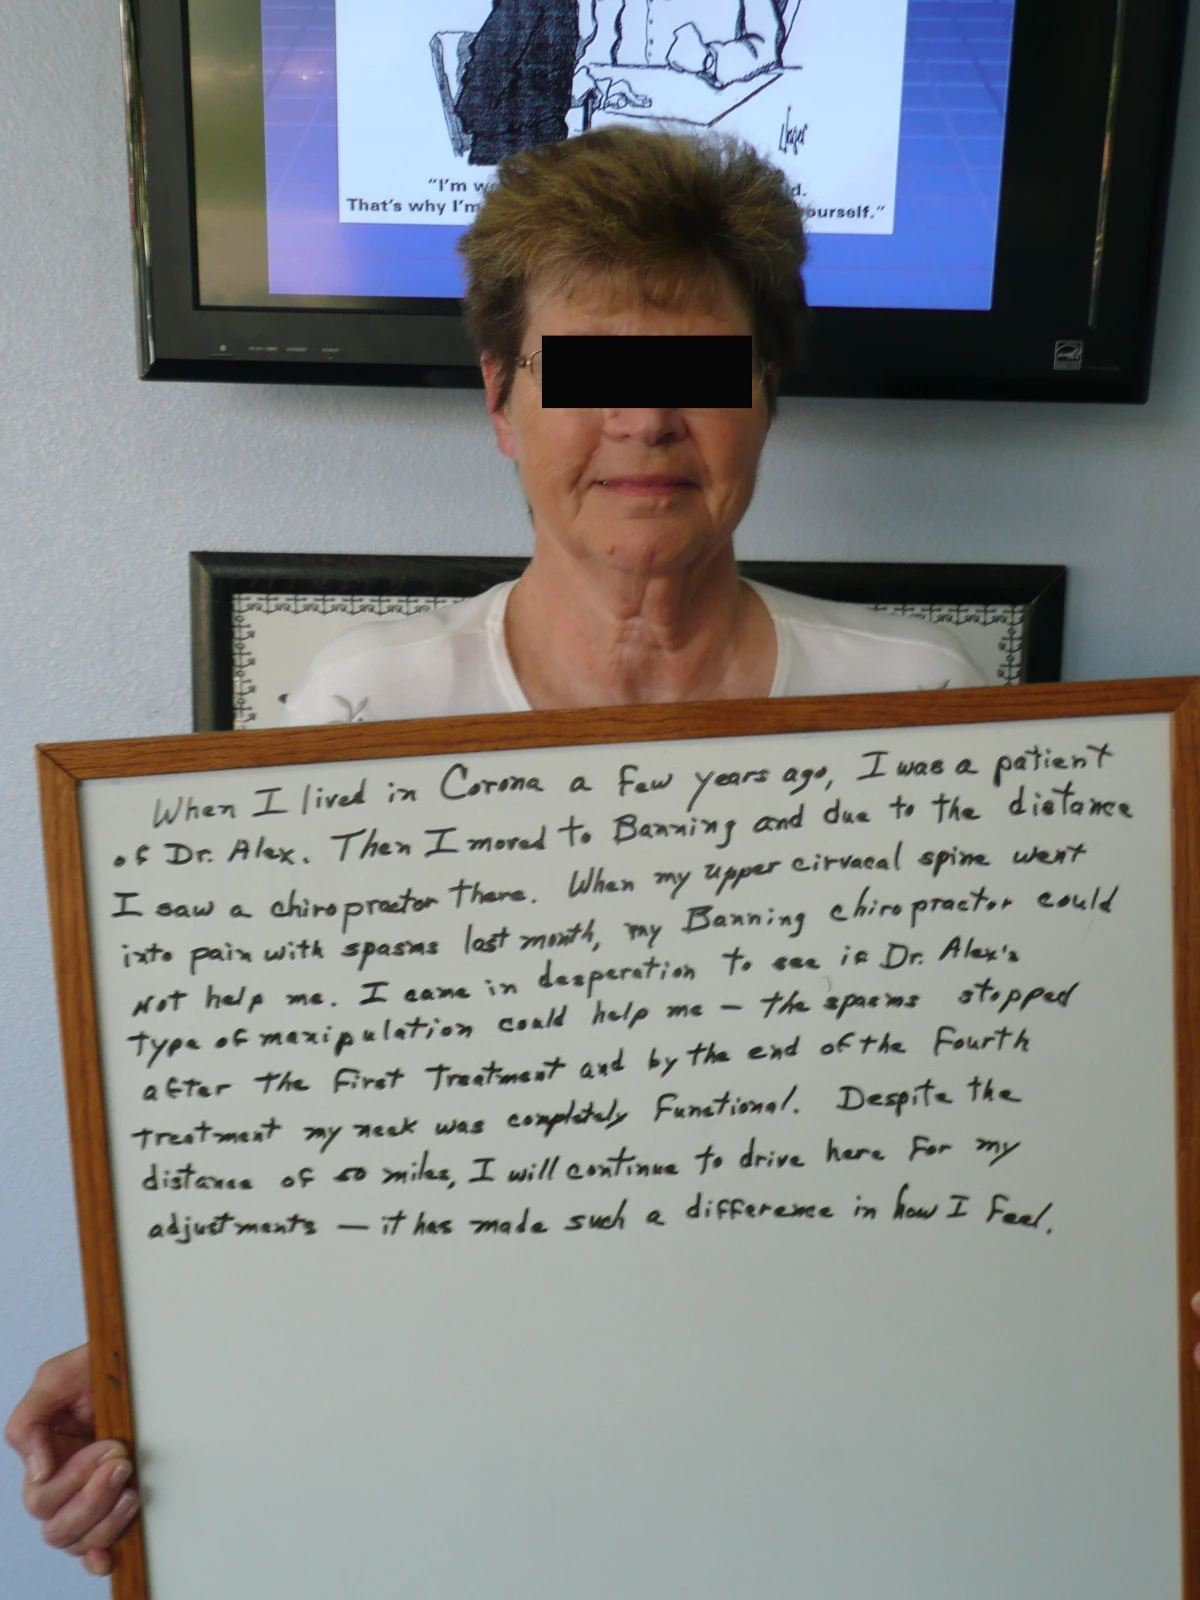 "I'm w d.
That's why I'm ourself."
When I lived in Corona a few years ago, I was a patient
of Dr. Alex. Then I moved to Banning and due to the distance
I saw a chiropractor there. When my upper cirvacal spine went
into pain with spasms last month, my Banning chiropractor could
Not help me. I came in desperation to see if Dr. Alex's
type of manipulation could help me – the spasms stopped
after the first treatment and by the end of the fourth
treatment my neck was completely functional. Despite the
distance of 50 miles, I will continue to drive here for my
adjustments – it has made such a difference in how I feel.